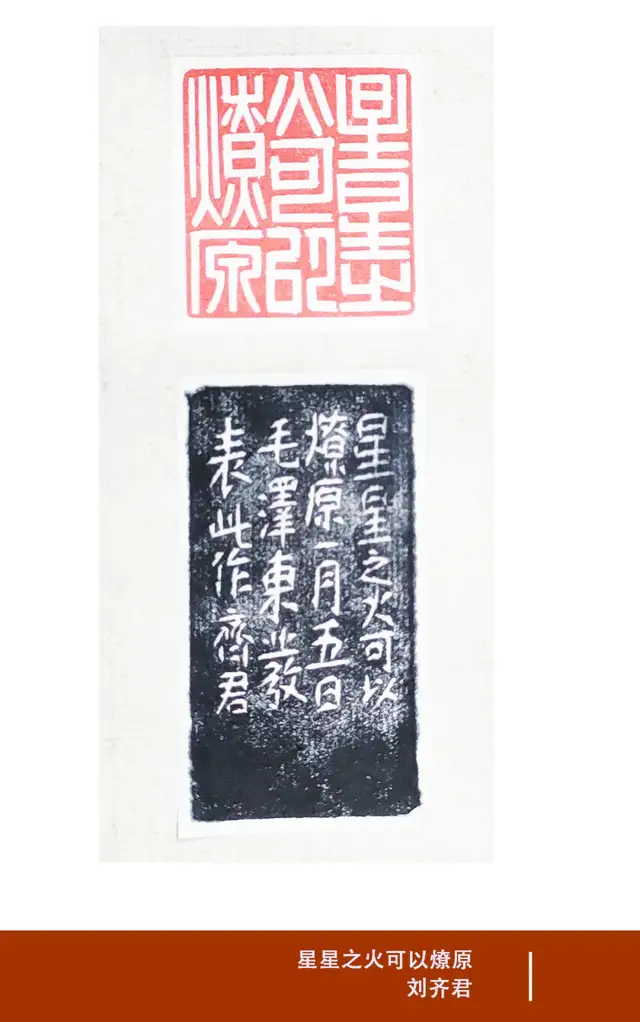 星星之
火可以
燎原
星星之火可以
燎原一月五日
毛澤東發
表此作齊君
星星之火可以燎原
刘齐君